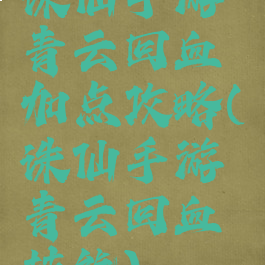 诛仙手游
青云回血
加点攻略(
诛仙手游
青云回血
技能)